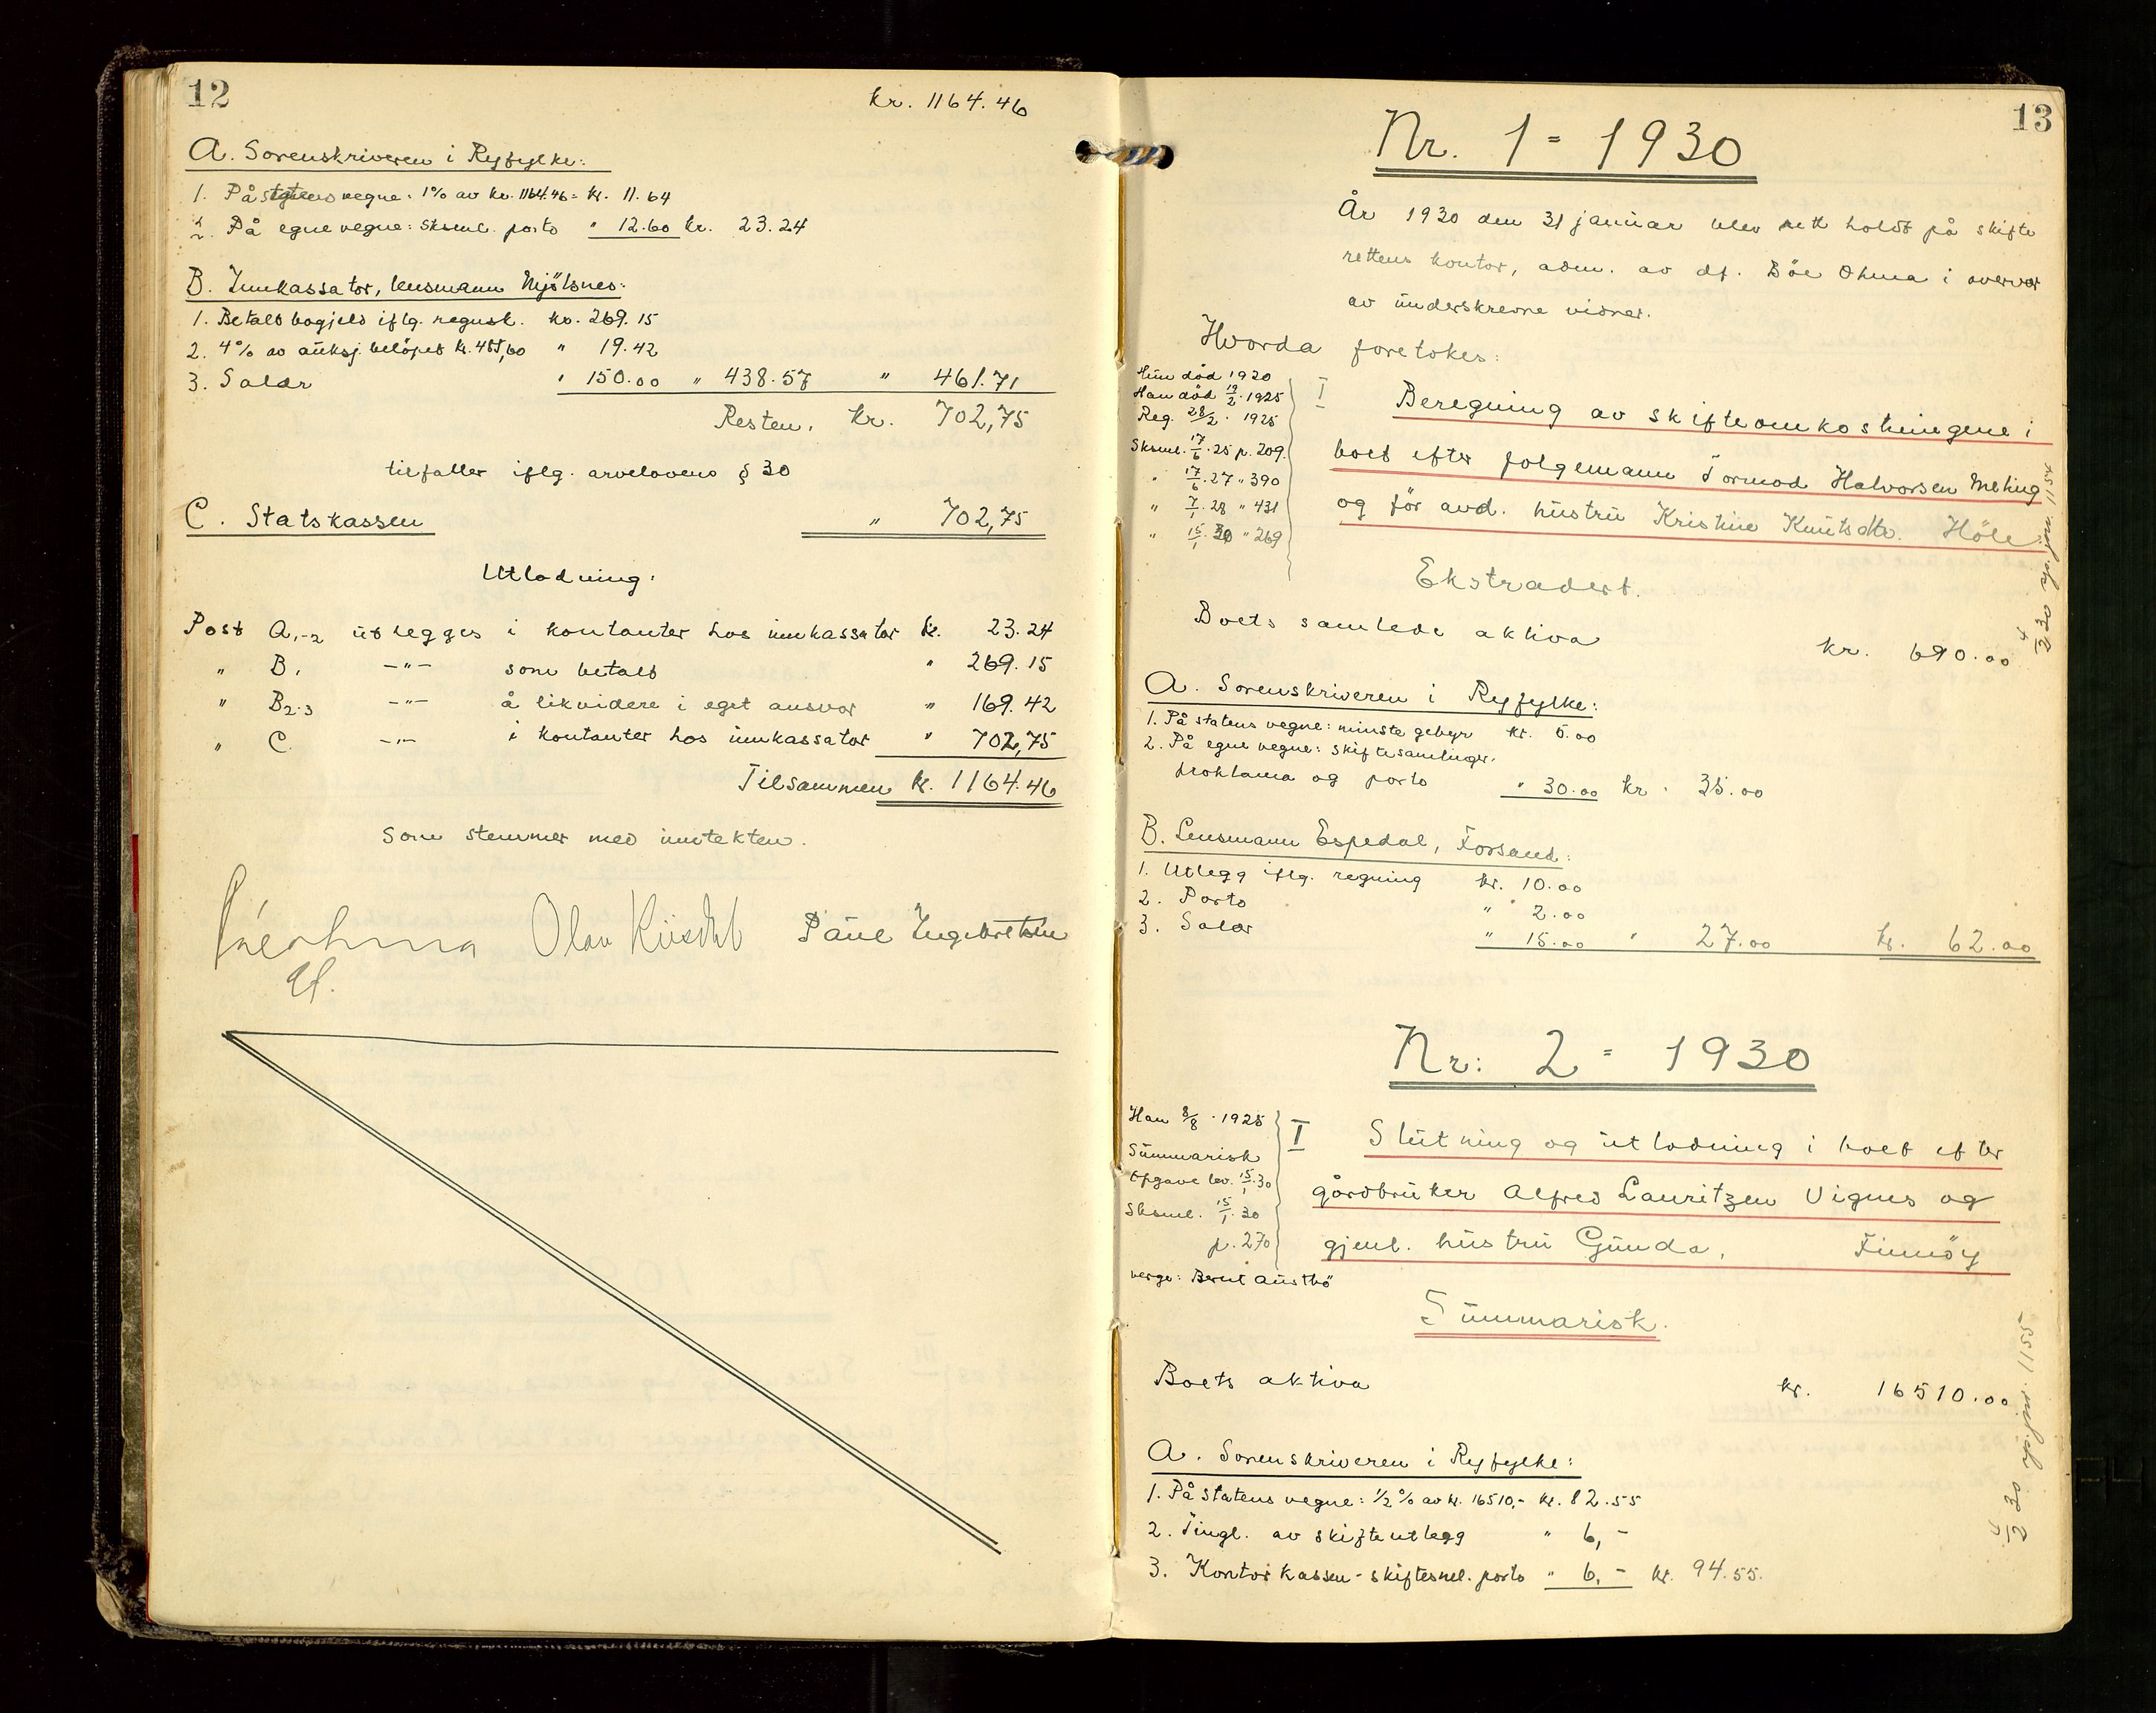 12
kr. 1164.46
A. Sorenskriveren i Ryfylke:
1. På statens vegne: 1% av kr. 1164.46 = kr. 11.64
2. På egne vegne: sksml. porto " 12.60 kr. 23.24
B. Innkassator, lensmann Mjölsnes:
1. Betalt bogjeld iflg. regnsk. kr. 269.15
2. 4% av auksj. belöpet kr. 485,60 " 19.42
3. Salær " 150.00 " 438.57 " 461.71
Resten, kr. 702,75
tilfaller iflg. arvelovens § 30
C. Statskassen " 702,75
Utlodning:
Post A,-2 utlegges i kontanter hos innkassator kr. 23.24
" B, -"- som betalt " 269.15
" B2-3 -"- å likvidere i eget ansvar " 169.42
" C. -"- i kontanter hos innkassator " 702,75
Tilsammen kr. 1164.46
Som stemmer med inntekten.
Böe Ohma Olav Paul Ingebretsen
df.
13
Nr. 1 = 1930
År 1930 den 31 januar blev rett holdt på skifte
rettens kontor, adm. av df. Böe Ohma i overvær
av underskrevne vidner.
Hvorda foretokes:
Hun död 1920
Han död 19/2 · 1925
Reg. 28/2 · 1925
Sksml. 17/6 · 25 p. 209.
" 17/6 · 27 " 390
" 7/1 · 28 " 431
" 15/1 · 30 " 269
I Beregning av skifteomkostningene i
boet efter folgemann Tormod Halvorsen Meling
og för avd. hustru Kristine Knutsdtr. Höle
Ekstradert.
Boets samlede aktiva kr. 690.00
4/2 30 sp. jnr. 1154
A. Sorenskriveren i Ryfylke:
1. På statens vegne: minste gebyr kr. 5.00
2. På egne vegne: skiftesamlinger,
proklama og porto " 30.00 kr. 35.00
B. Lensmann Espedal, Forsand:
1. Utlegg iflg. regning kr. 10.00
2. Porto " 2.00
3. Salær " 15.00 " 27.00 kr. 62.00
Nr: 2 = 1930
Han 8/8 · 1925
Summarisk
Opgave lev. 15/1 · 30
Sksml. 15/1 · 30
p. 270
verge: Bernt Austbö
I Slutning og utlodning i boet efter
gårdbruker Alfred Lauritzen Vignes og
gjenl. hustru Gunda, Finnöy
Summarisk.
Boets aktiva kr. 16510.00
4/2 30 sp. jnr. 1155
A. Sorenskriveren i Ryfylke:
1. På statens vegne: 1/2 % av kr. 16510,- kr. 82.55
2. Tingl. av skifteutlegg " 6,-
3. Kontorkassen - skiftesml. porto " 6,- kr. 94.55.